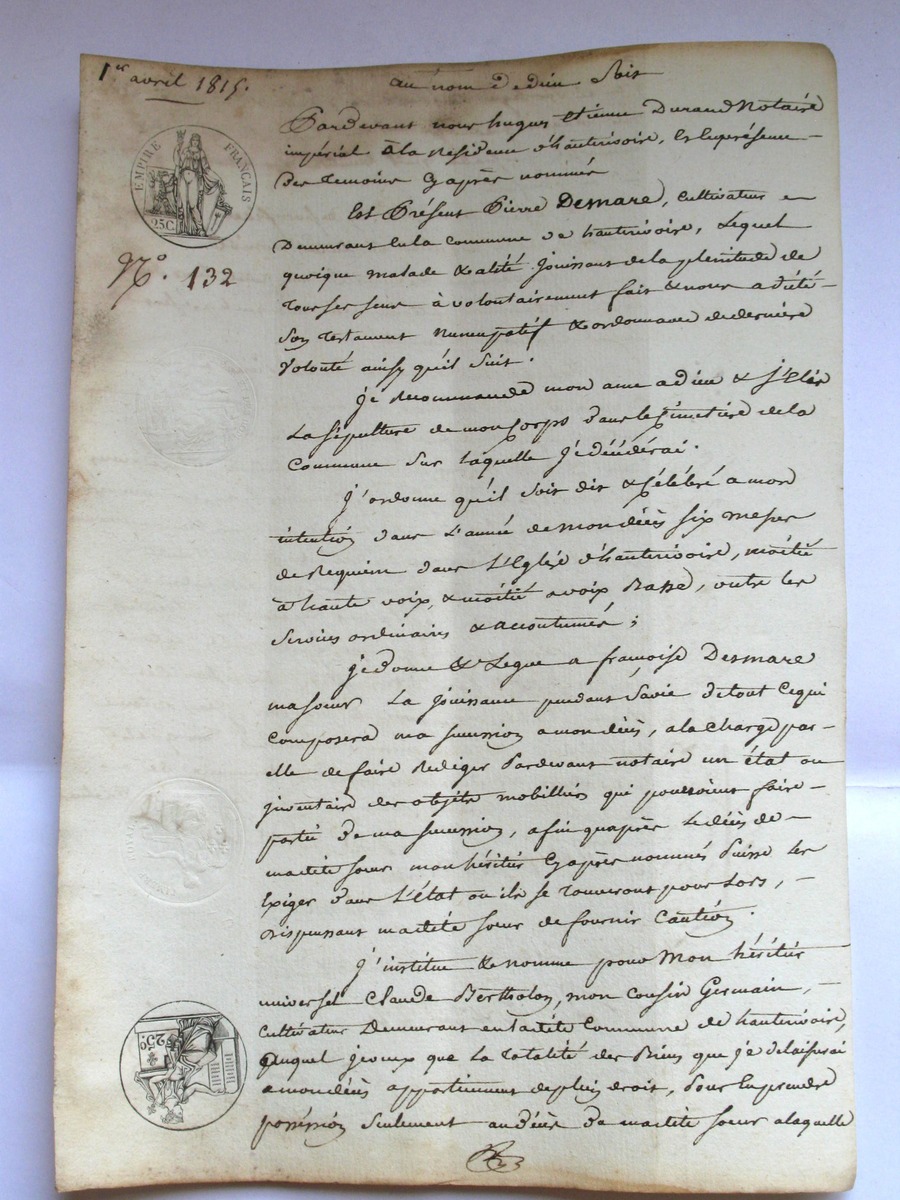 1er avril 1815.
au nom de dieu Soit
Pardevant nous hugues Etienne Durand Notaire
impérial à la Résidence d'hauterivoire, Et En présence
des temoins Cy après nommés
EMPIRE FRANÇAIS
25C.
Est Présent Pierre Desmare, Cultivateur
Demeurant En la commune de hauterivoire, Lequel
N.º 132
quoique malade & alité jouissant de la plenitude de
tous ses sens à volontairement fait & nous a dicté
Son testament nuncupatif & ordonnance de derniere
Volonté ainsy qu'il Suit.
Je Recommande mon ame a dieu & j'Elis
La Sépulture de mon Corps dans le Cimetière de la
Commune Sur laquelle je décéderai.
J'ordonne qu'il Soit dit & Célébré a mon
intention dans L'année de mon décès Six messes
de Requiem dans L'Eglise d'hauterivoire, moitié
à haute voix, & moitié a voix Basse, outre les
Services ordinaires & accoutumés ;
je donne & Legue a françoise Desmare
ma Soeur La jouissance pendant Sa vie de tout Ce qui
Composera ma Succession a mon décès, a la Charge par
elle de faire Rédiger Pardevant notaire un état ou
inventaire des objets mobilliers qui pourroient faire
partie de ma Succession, afin qu'après Le décès de
madite Soeur mon héritier Cy après nommé Puisse Les
Exiger dans L'état ou ils se trouveront pour Lors,
dispensant madite Soeur de fournir Caution.
J'institue & nomme pour Mon héritier
universel Claude Bertholon, mon Cousin Germain,
Cultivateur Demeurant en ladite Commune de hauterivoire,
auquel je veux que La totalité des Biens que je délaisserai
a mon décès appartiennent de plein droit, Pour En prendre
possession Seulement au décès de madite Soeur a laquelle
25C.